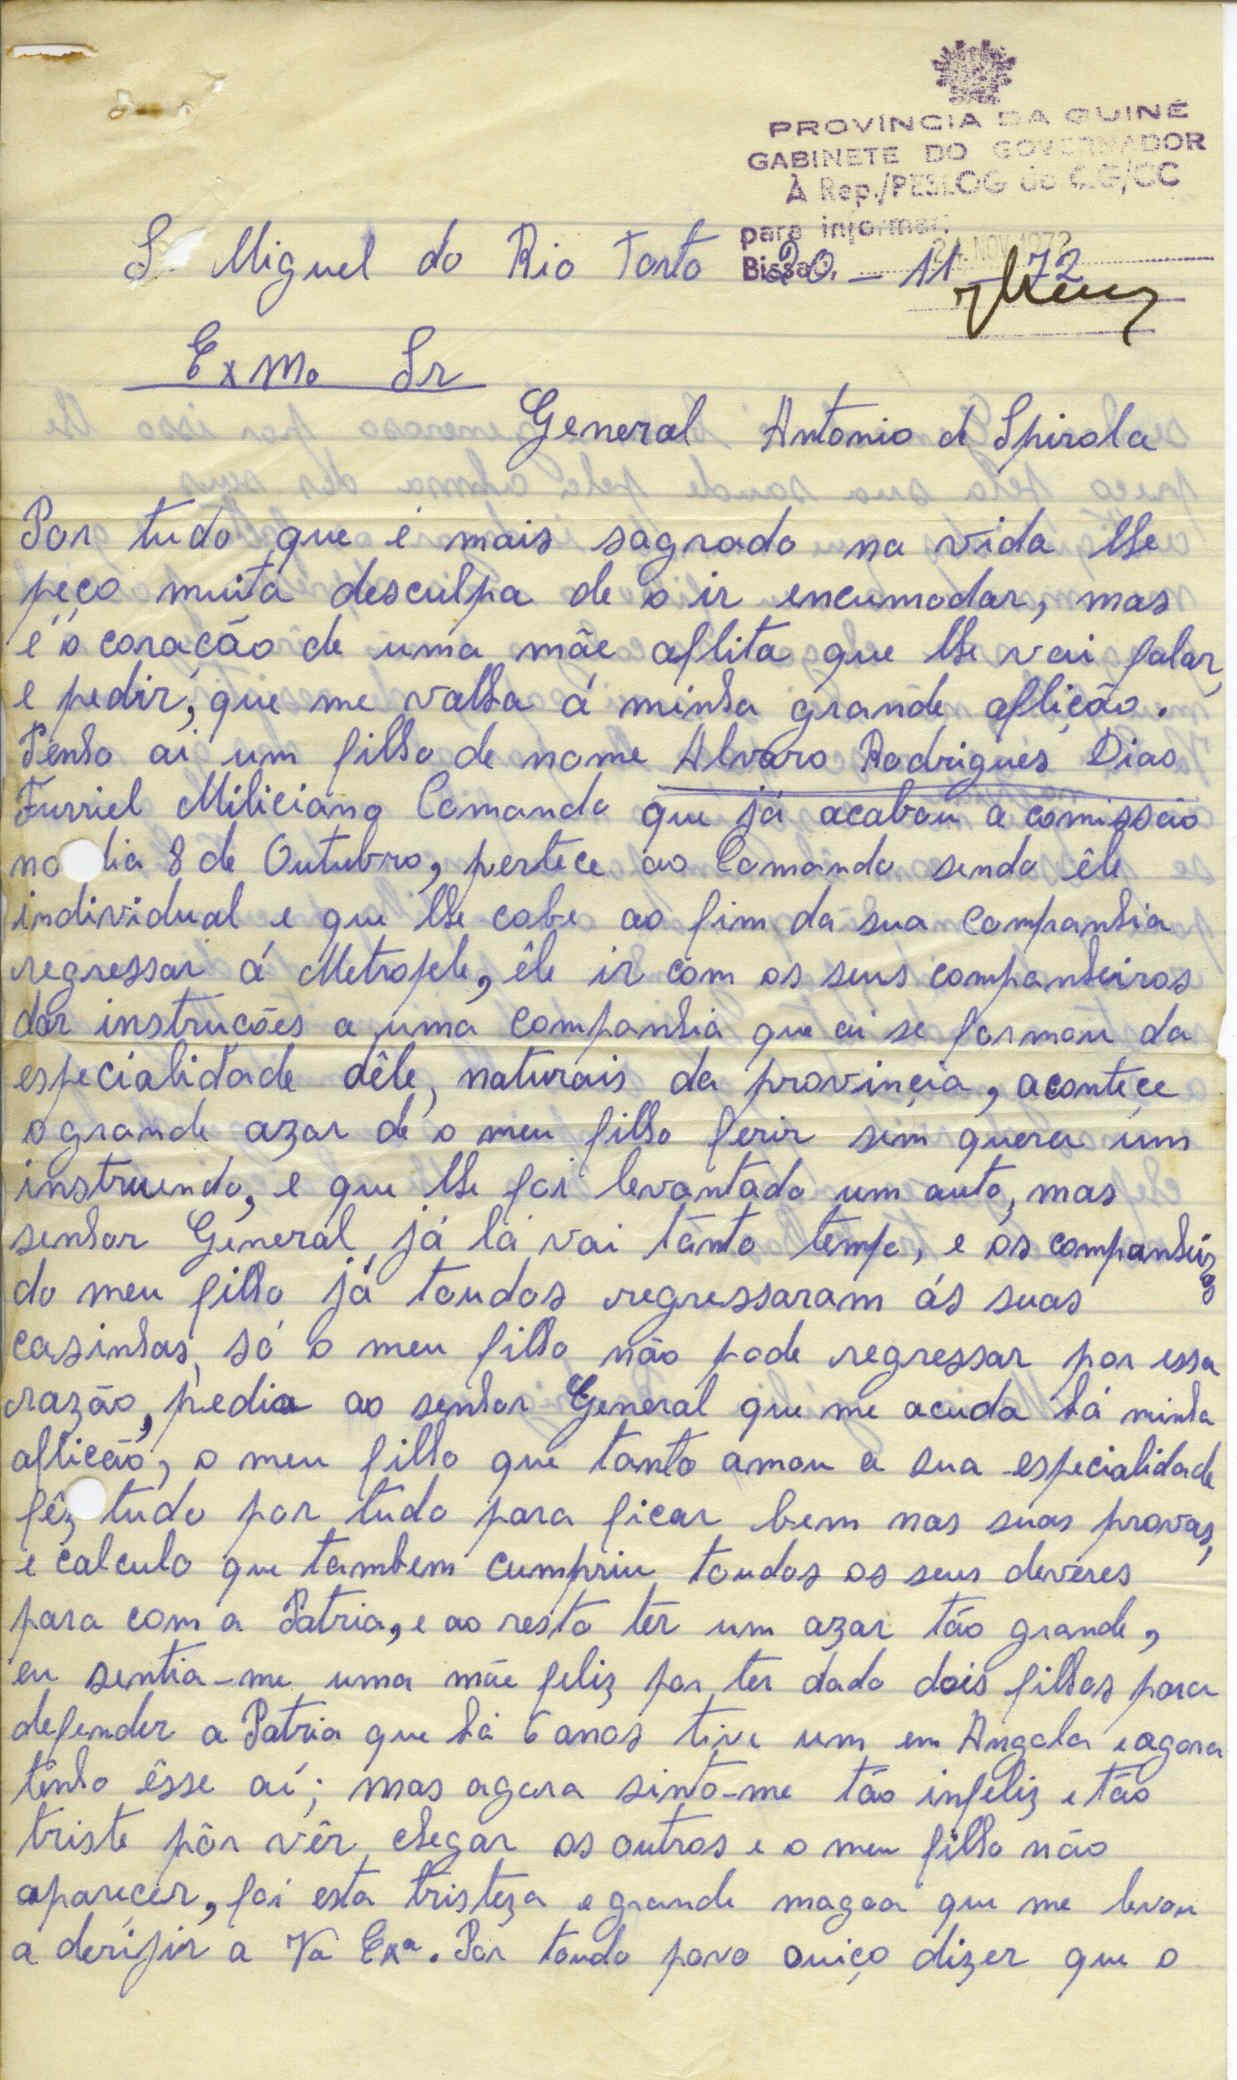 PROVÍNCIA DA GUINÉ
GABINETE DO GOVERNADOR
À Rep./PESLOG do QG/CC
para informar.
Bissau, 24 NOV 1972
S. Miguel do Rio Torto 20 - 11 - 72
Exmo Sr
General Antonio de Spirola
Por tudo que é mais sagrado na vida lhe
peço muita desculpa de o ir encumodar, mas
é o coracão de uma mãe aflita que lhe vai falar,
e pedir, que me valha á minha grande aflicão.
Tenho ai um filho de nome Alvaro Rodrigues Dias
Furriel Miliciano Comando que já acabou a comissão
no dia 8 de Outubro, pertece ao Comando sendo êle
individual e que lhe cabe ao fim da sua Companhia
regressar á Metrople, êle ir com os seus companheiros
dar instrucões a uma companhia que ai se formou da
especialidade dêle, naturais da provinçia, aconteçe
o grande azar de o meu filho ferir sem querer um
instruendo, e que lhe foi levantado um auto, mas
senhor General, já lá vai tanto tempo, e os companheiros
do meu filho já toudos regressaram ás suas
casinhas, só o meu filho não pode regressar por essa
razão, pedia ao senhor General que me acuda há minha
aflicão, o meu filho que tanto amou a sua especialidade
fêz tudo por tudo para ficar bem nas suas provas,
e calculo que tambem cumpriu toudos os seus deveres
para com a Patria, e ao resto ter um azar tão grande,
eu sentia-me uma mãe feliz por ter dado dois filhos para
defender a Patria que há 6 anos tive um em Angola e agora
tenho êsse aí; mas agora sinto-me tão infeliz e tão
triste pôr vêr chegar os outros e o meu filho não
aparecer, foi esta tristeza e grande magoa que me levou
a derijir a Va Exª. Por toudo povo ouiço dizer que o